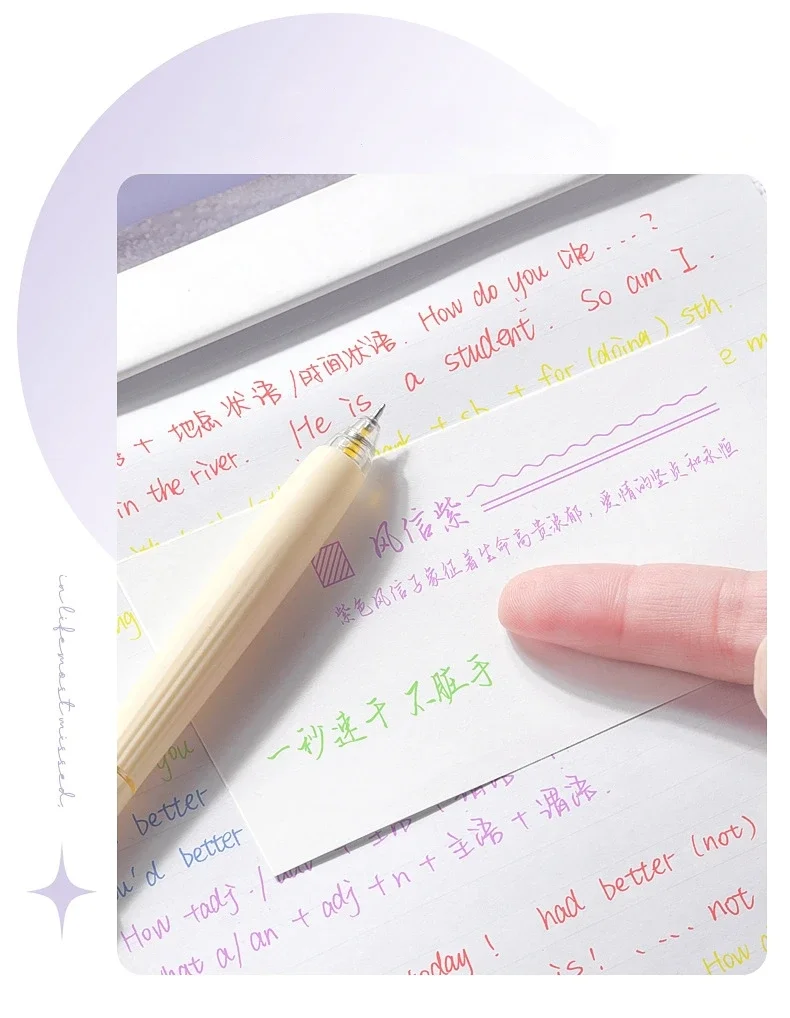 + 地点状语/时间状语. How do you like ....?
in the river. He is a student. So am I.
+ sb + for (doing) sth.
风信紫
紫色风信子象征着生命高贵浓郁，爱情的坚贞和永恒
一秒速干 不脏手
you
better
u'd better
+ 主语 + 谓语.
How +adj. /
hat a/an + adj +n + 主语 + 谓语.
had better (not)
today!
is! .... not
How
in life most missed,